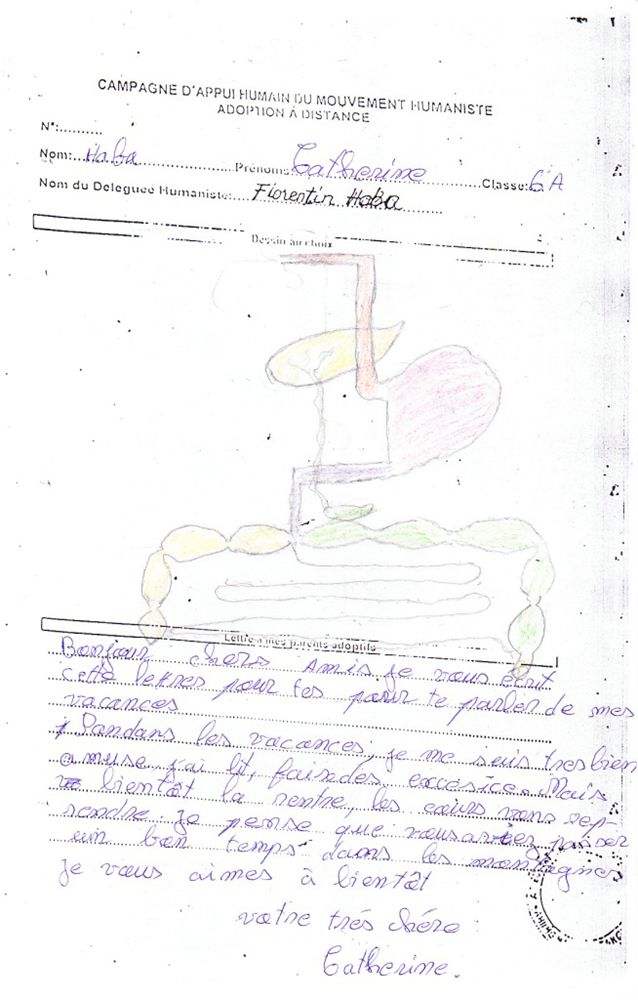 CAMPAGNE D'APPUI HUMAIN DU MOUVEMENT HUMANISTE
ADOPTION À DISTANCE
N°:..........
Nom:...Haba..........Prénoms:...Catherine..........Classe:6A
Nom du Deleguée Humaniste:....Florentin Haba..........
Dessin au choix
Lettre à mes parents adoptifs
Bonjour chers Amis je vous écrit
cette lettres pour tes parir te parler de mes
vacances
Pandans les vacances, je me suis tres bien
amuse j'ai lit, faisades excesice. Mais
bientôt la rentre, les cours vons rep-
rendre. je pense que vous passer
un bon temps dans les montagnes
je vous aimes à bientôt
votre très chére
Catherine.